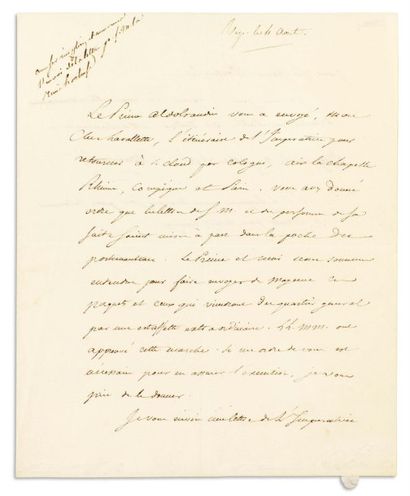 Le Prince aldobrandini vous a envoyé, mon
Cher Lavallette, l'itinéraire de l'Imperatrice pour
retourner à St. Cloud par Cologne, aix la chapelle
Rheims, Compiègne et Paris. vous avez donné
ordre que les lettres de S. M. et des personnes de sa
suite soient mises à part dans la poche des
portemanteaux. Le Prince et moi nous sommes
entendus pour faire envoyer de Mayence les
paquets et ceux qui viendront du quartier general
par une estafette extraordinaire. LL MM. ont
approuvé cette marche. Si un ordre de vous est
nécessaire pour en assurer l'execution, je vous
prie de le donner.
Je vous envoie une lettre de l'Imperatrice